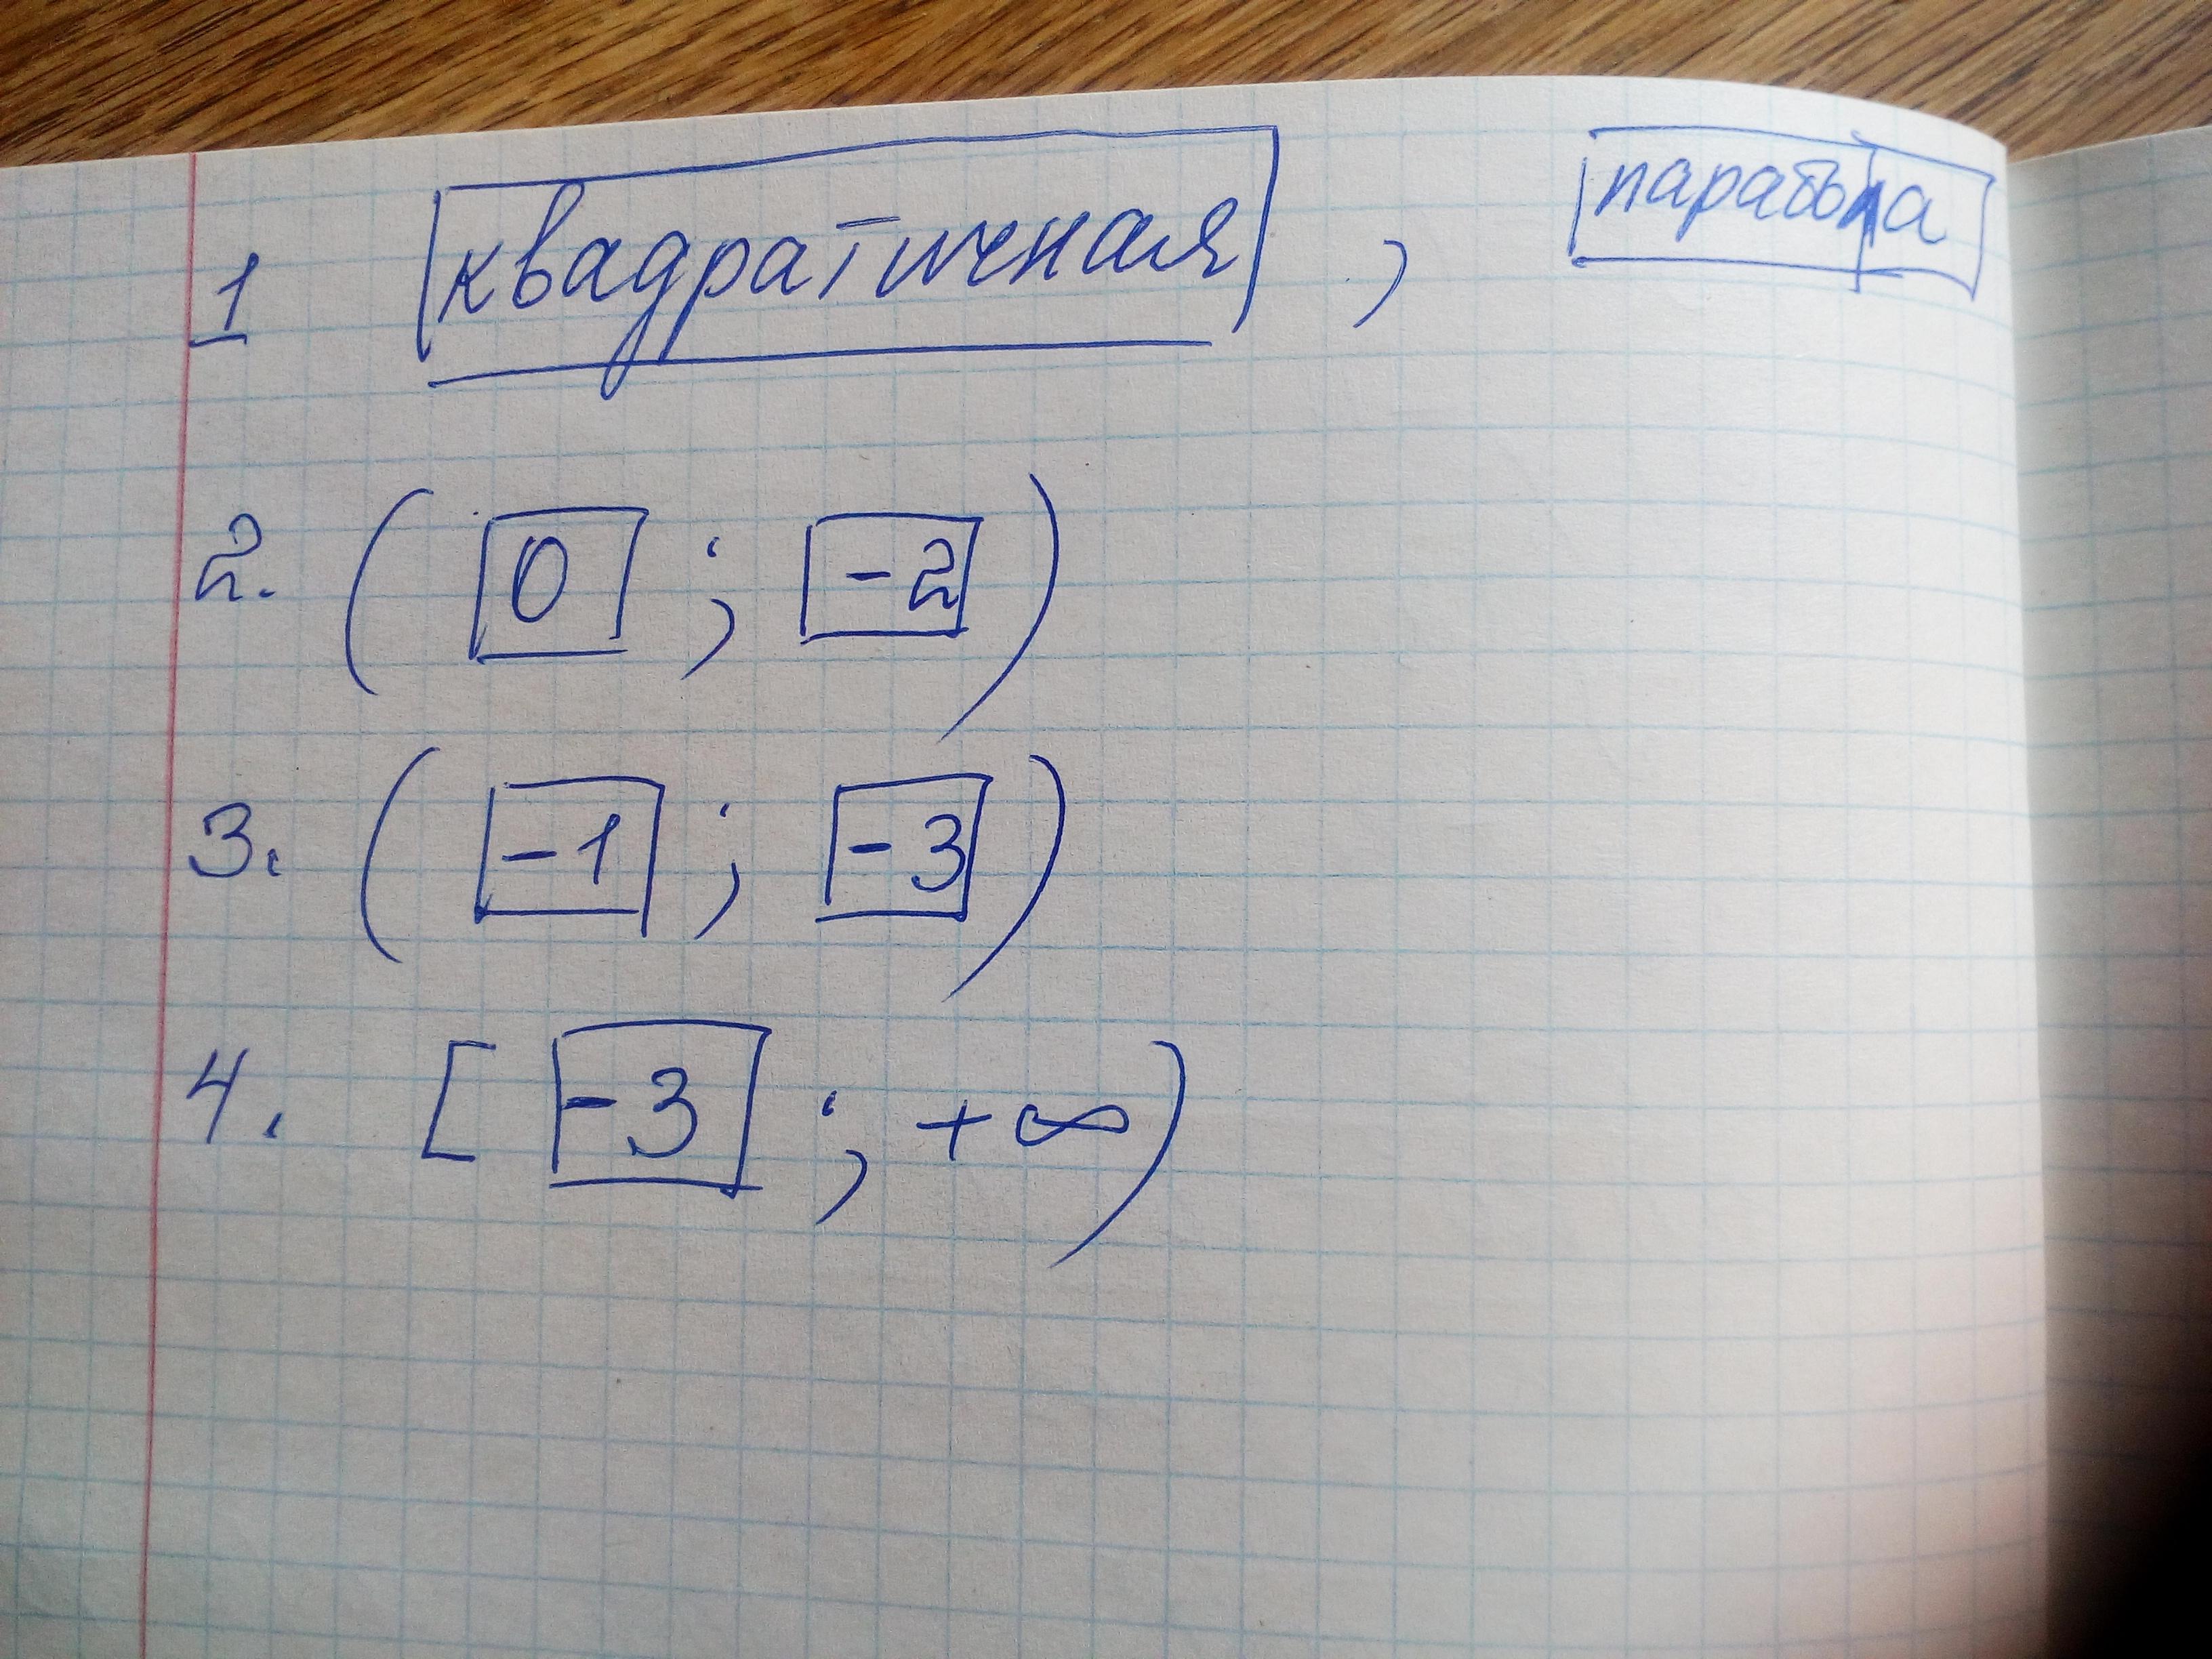 1 квадратичная , парабола
2. ( 0 ; -2 )
3. ( -1 ; -3 )
4. [ -3 ; +∞ )